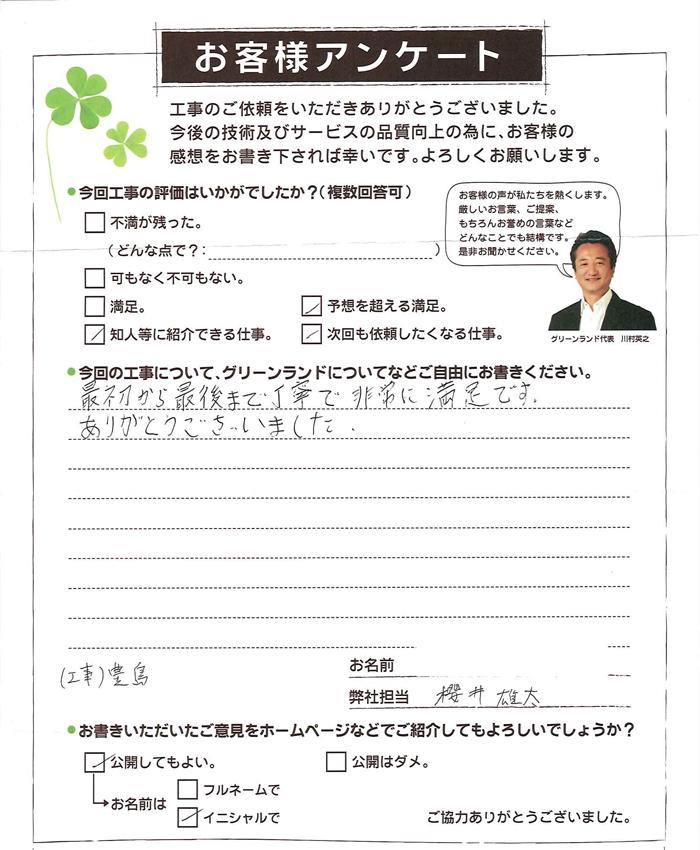 お客様アンケート
工事のご依頼をいただきありがとうございました。
今後の技術及びサービスの品質向上の為に、お客様の
感想をお書き下されば幸いです。よろしくお願いします。
今回工事の評価はいかがでしたか？（複数回答可）
不満が残った。
（どんな点で？：　）
可もなく不可もない。
満足。
予想を超える満足。
知人等に紹介できる仕事。
次回も依頼したくなる仕事。
お客様の声が私たちを熱くします。
厳しいお言葉、ご提案、
もちろんお誉めの言葉など
どんなことでも結構です。
是非お聞かせください。
グリーンランド代表　川村英之
今回の工事について、グリーンランドについてなどご自由にお書きください。
最初から最後まで丁寧で非常に満足です。
ありがとうございました．
（工事）豊島
お名前
弊社担当　櫻井 雄太
お書きいただいたご意見をホームページなどでご紹介してもよろしいでしょうか？
公開してもよい。
公開はダメ。
お名前は
フルネームで
イニシャルで
ご協力ありがとうございました。